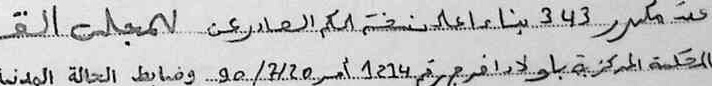 مكرر 343 بناءا على نسخة الحكم الصادر عن المجلس
المحكمة المركزية باولاد افرج رقم 1214 أمر 90/7/20 وضابط الحالة المدنية